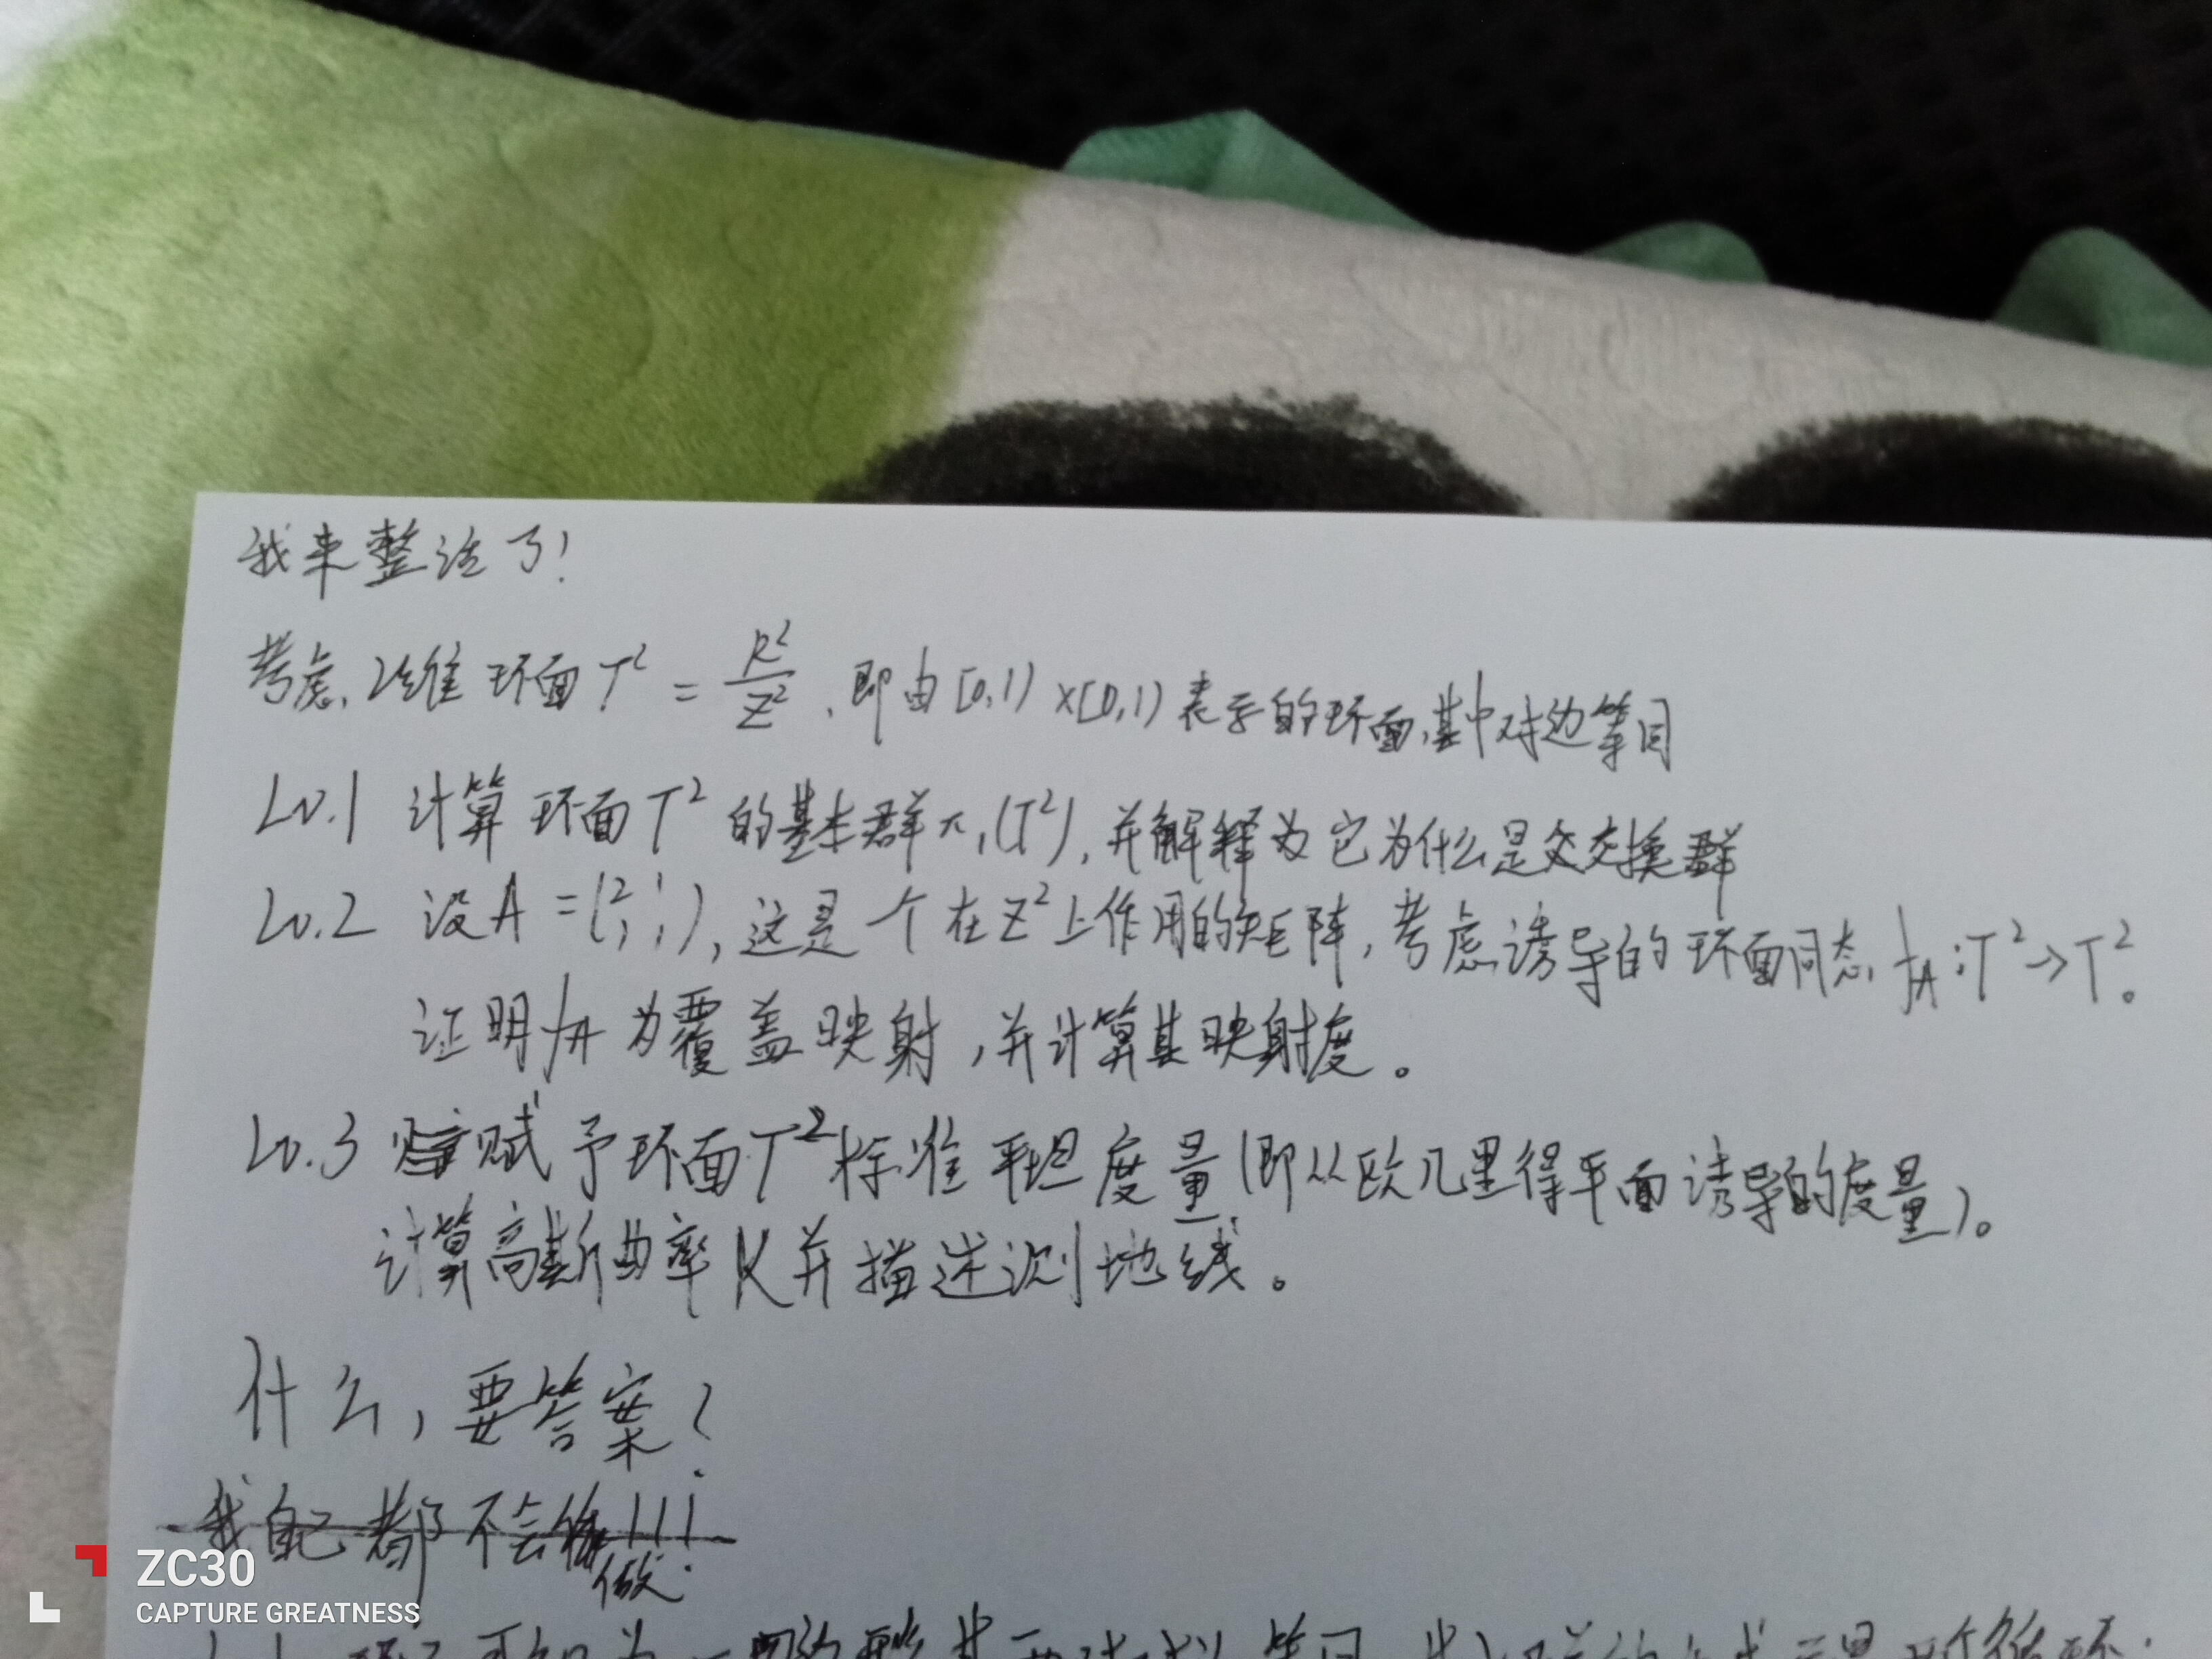 我来整活了!
考虑2维环面T² = R²/Z²,即由[0,1)×[0,1)表示的环面,其中对边等同
Lv.1 计算环面T²的基本群π₁(T²),并解释为它为什么是交交换群
Lv.2 设A=(2 1; 1 1),这是一个在Z²上作用的矩阵,考虑诱导的环面同态f_A:T²→T²。
证明f_A为覆盖映射,并计算其映射度。
Lv.3 赋予环面T²标准平坦度量(即从欧几里得平面诱导的度量)。
计算高斯曲率K并描述测地线。
什么,要答案?
我自己都不会做!!!
ZC30
CAPTURE GREATNESS